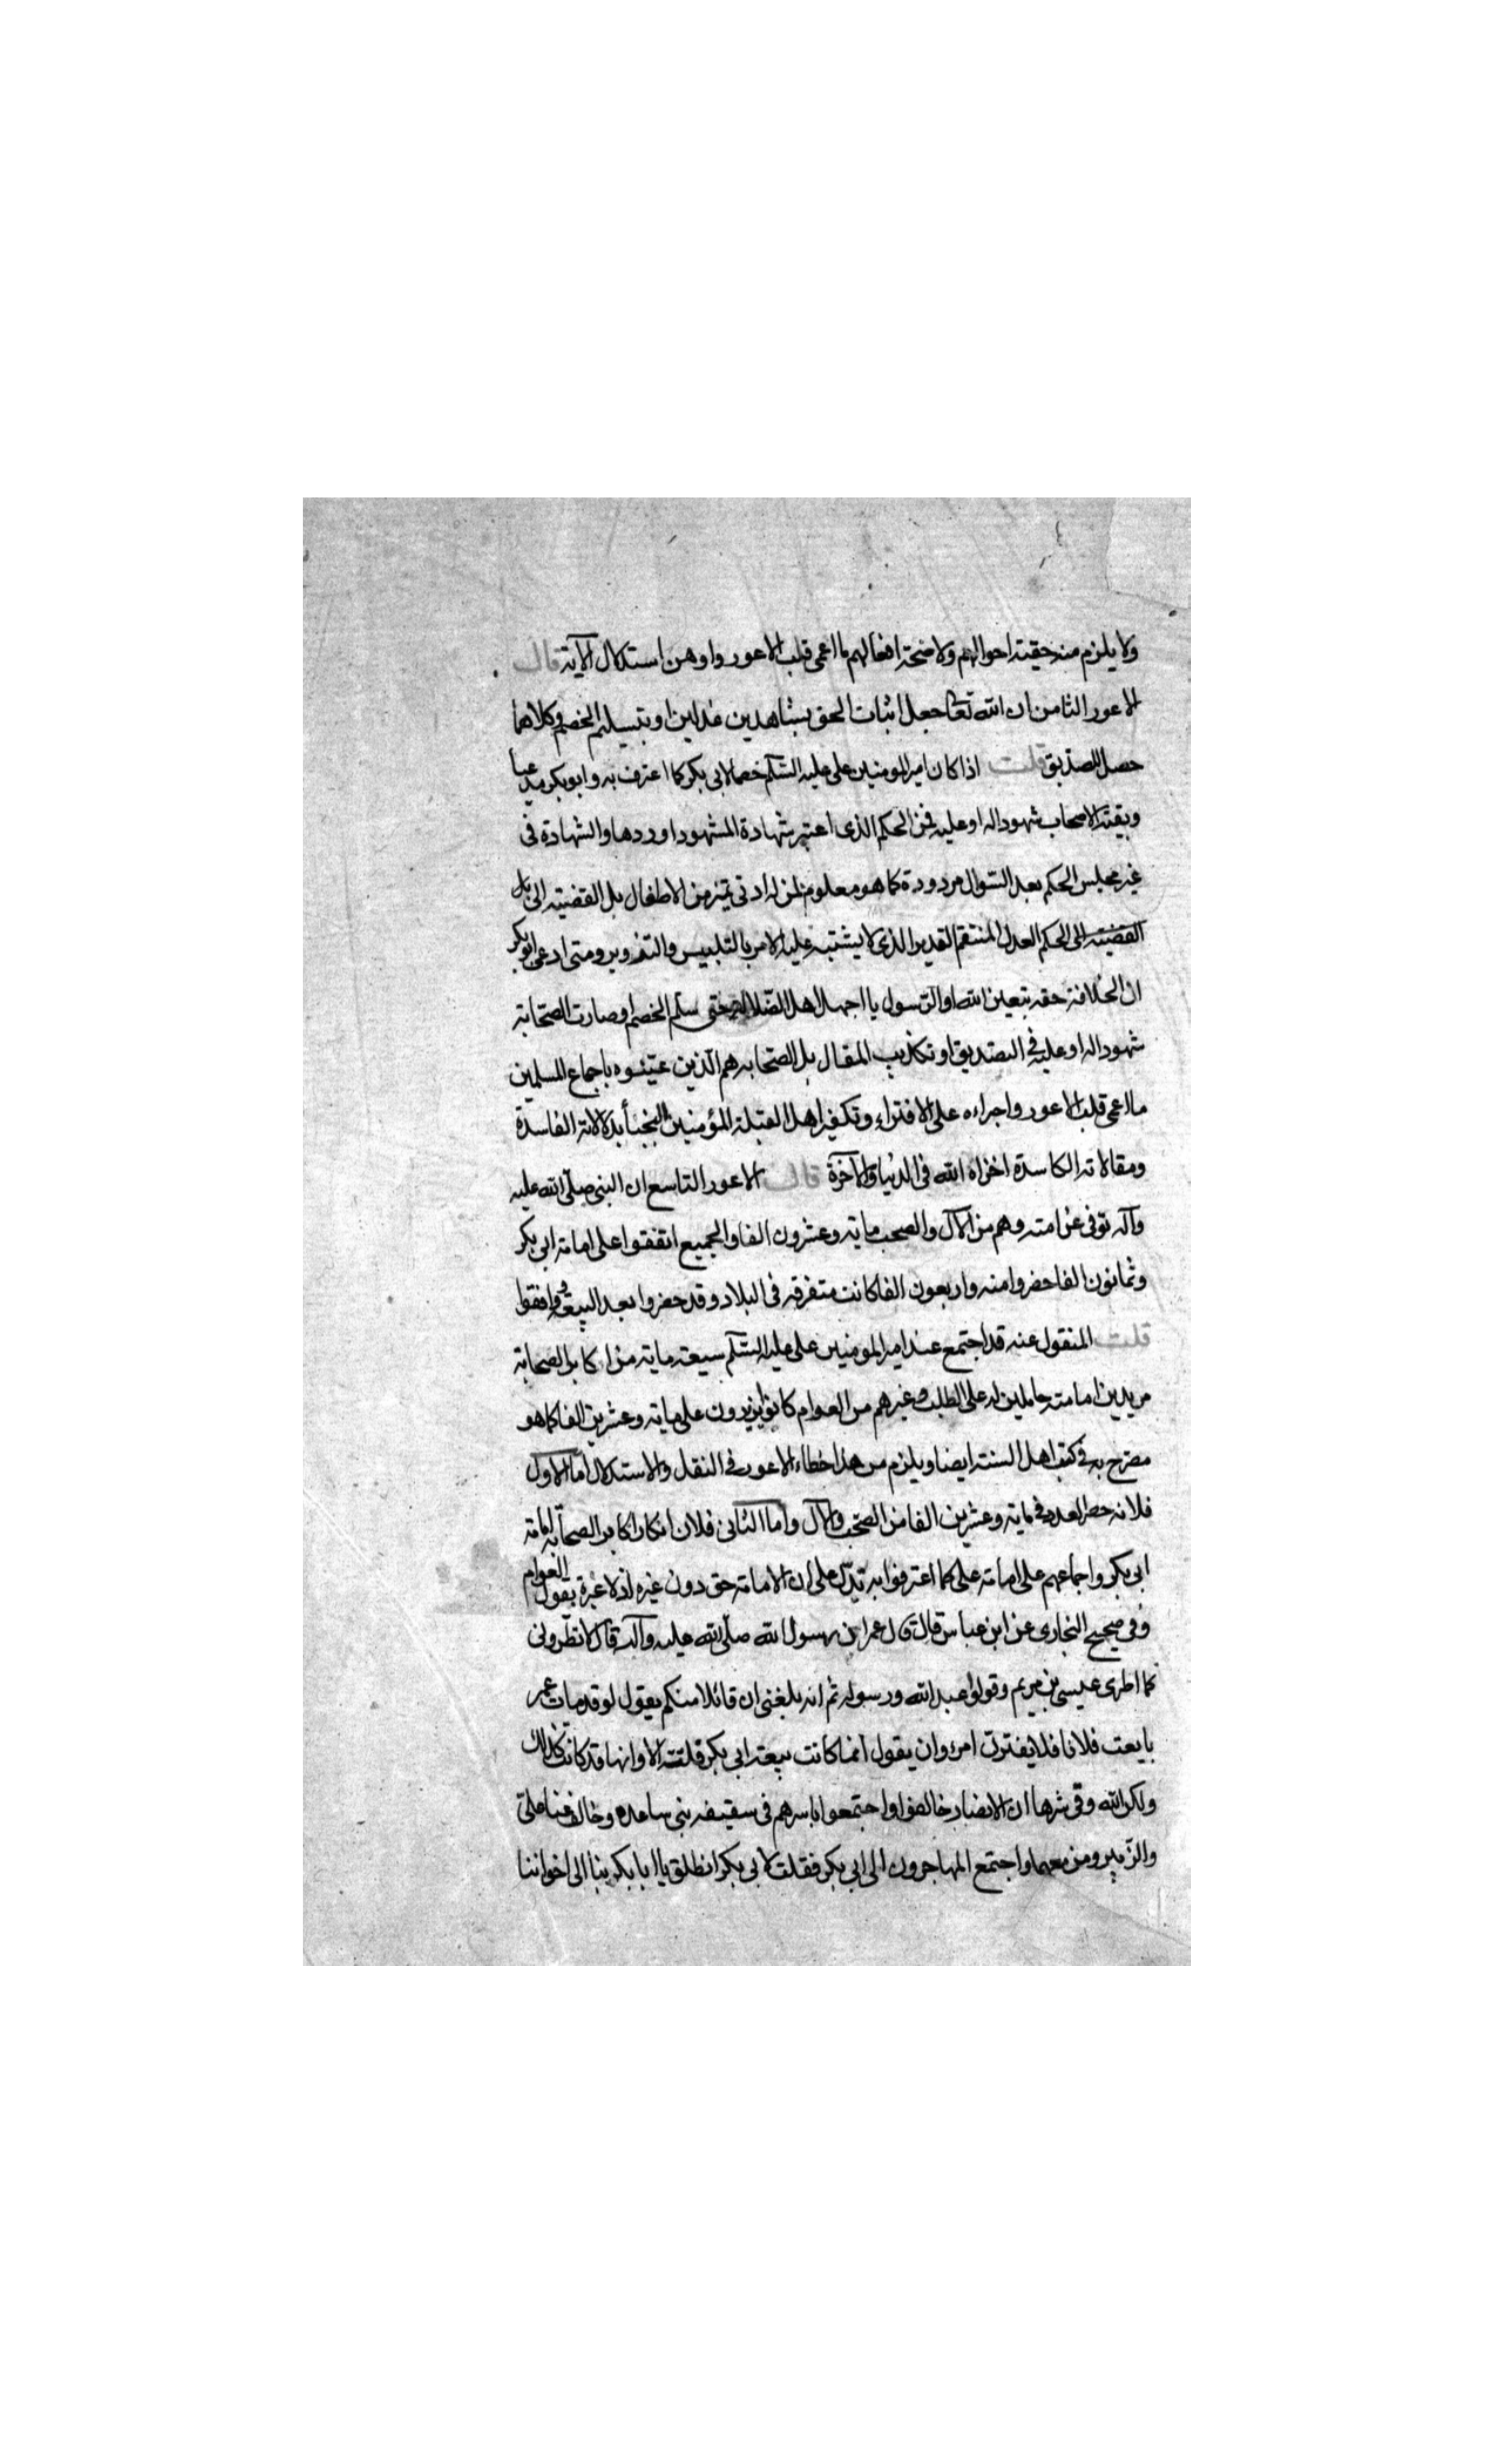 ولا يلزم منه حقية احوالهم ولا صحة افعالهم ما اعمى قلب الاعور واوهن استدلال الآية قال
الاعور الثامن ان الله تعالى جعل اثبات الحق بشاهدين عدلين او بتسليم الخصم وكلاهما
حصل للصديق قلت اذا كان امير المومنين على عليه السّلم خصما لابى بكر كما اعترف به وابو بكر مدعيا
وبقية الاصحاب شهودا له او عليه فمن الحكم الذى اعتبر شهادة المشهود او ردها والشهادة فى
غير مجلس الحكم بعد السّوال مردودة كما هو معلوم لمن له ادنى تميز من الاطفال بل القضيته الى بل
القضيته الى الحكم العدل المنتقم القدير الذى لا يشتبه عليه الامر بالتلبيس والتزوير ومتى ادعى ابو بكر
ان الخلافة حقه بتعين الله او الرّسول يا اجهل اهل الضّلالة حتى سلّم الخصم او صارت الصّحابة
شهودا له او عليه فى التصديق او تكذيب المقال بل الصّحابه هم الّذين عيّنوه باجماع المسلمين
ما اعمى قلب الاعور واجراءه على الافتراء وتكفير اهل القبلة المؤمنين النجباء بدلالاته الفاسدة
ومقالاته الكاسدة اخزاه الله فى الدنيا والآخرة قال الاعور التاسع ان النبى صلّى الله عليه
وآله توفى عن امته وهم من الآل والصحب ماية وعشرون الفا والجميع اتفقوا على امامة ابى بكر
وثمانون الفا حضروا منه واربعون الفا كانت متفرقه فى البلاد وقد حضروا بعد البيعة ووافقوا
قلت المنقول عنه قد اجتمع عند امير المومنين على عليه السّلم سبعة ماية من اكابر الصحابة
مريدين امامته حاملين له على الطلب وغيرهم من العوام كانوا يزيدون على ماية وعشرين الفا كما هو
مصرّح به فى كتب اهل السنة ايضا ويلزم من هذا خطاء الاعور فى النقل والاستدلال اما الاول
فلانه حصر العدد فى ماية وعشرين الفا من الصّحب والآل واما الثانى فلان انكار اكابر الصحابة امامة
ابى بكر واجماعهم على امامة على كما اعترفوا به تدلّ على ان الامامة حق دون غيره اذ لا عبرة بقول العوام
وفى صحيح البخارى عن ابن عباس قال قال عمر ان رسول الله صلّى الله عليه وآله قال لا تطرونى
كما اطرى عيسى بن مريم وقولوا عبد الله ورسوله ثم انه بلغنى ان قائلا منكم يقول لو قد مات عمر
بايعت فلانا فلا يغترن امرؤ ان يقول انما كانت بيعة ابى بكر فلتة الا وانها قد كانت كذلك
ولكن الله وقى شرها ان الانصار خالفوا واجتمعوا باسرهم فى سقيفه بنى ساعده وخالف عنا على
والزّبير ومن معهما واجتمع المهاجرون الى ابى بكر فقلت لابى بكر انطلق يا ابا بكر بنا الى اخواننا